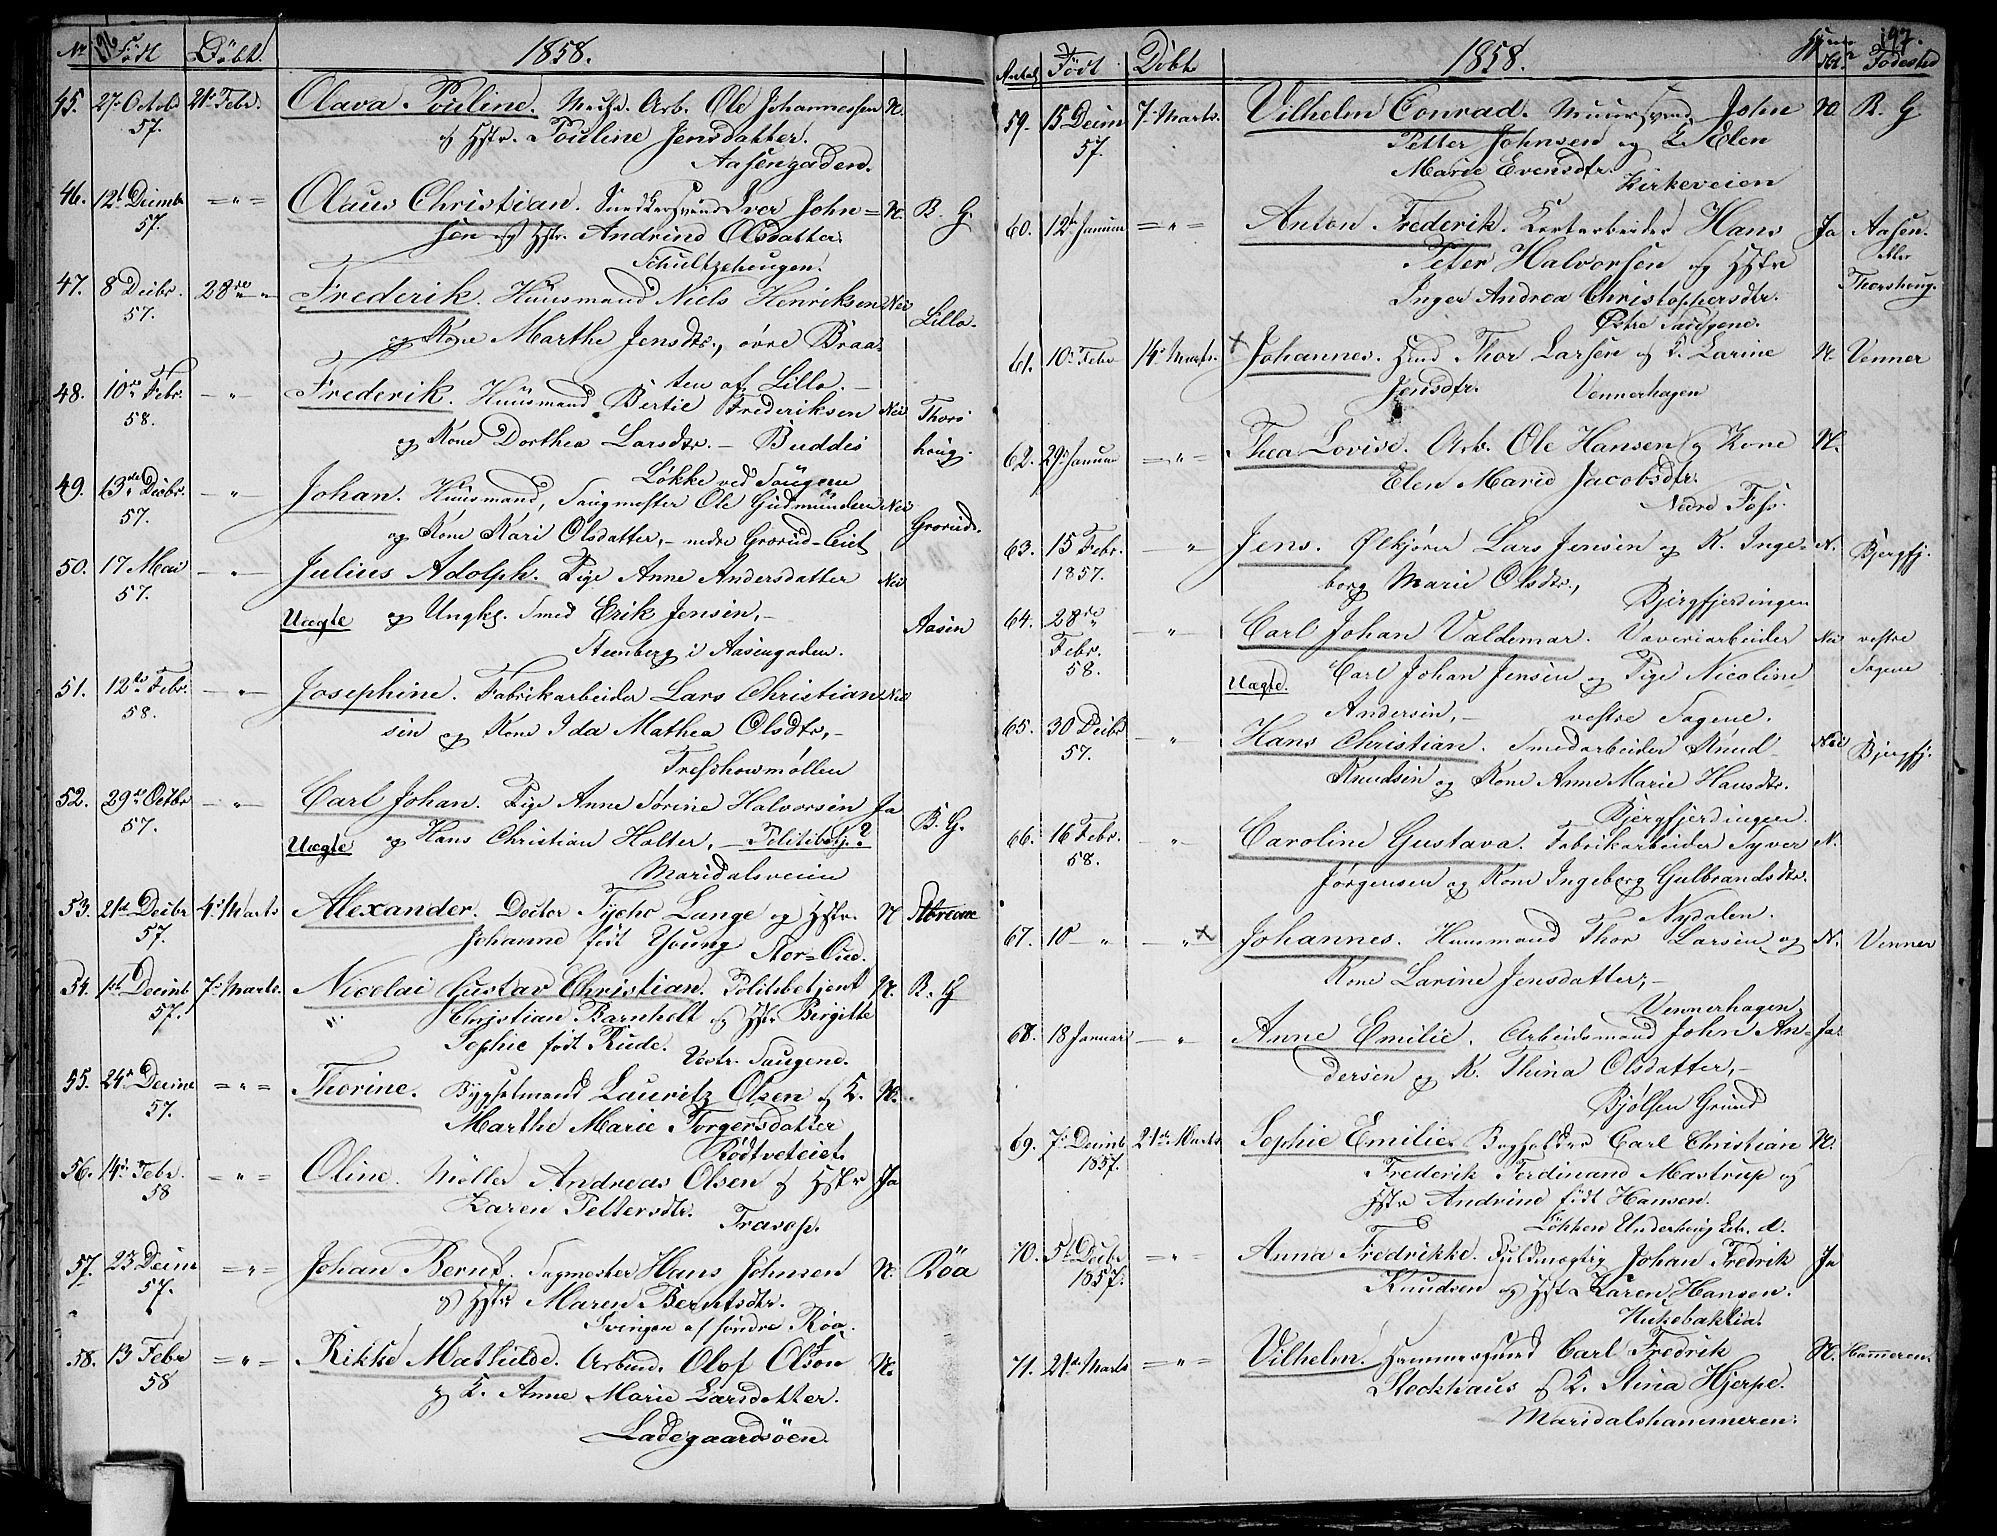 196
No. Född Döbt. 1858.
45. 27. Octobr 57. 21. Febr. Olava Pouline. Arb. Ole Johannessen N.
og Hstr. Pouline Jensdatter.
Aasengaden.
46. 12t Decimb 57. = " = Olaus Christian. Iver John= N. B. G.
sen og Hstr. Andrine Olsdatter
Schultzehougen.
47. 8 Decbr. 57. 28de " Frederik. Huusmand Niels Henriksen Nei Lillo.
og Kone Marthe Jensdtr., övre Braa-
ten af Lillo.
48. 10de Febr. 58. - " - Frederik. Huusmand Bertie Frederiksen Nei Thors
og Kone Dorthea Larsdtr. - Buddes houg.
Løkke ved Saugene
49. 13de Decbr. 57. - " - Johan. Huusmand, Saugmester Ole Gudmundsen Nei Grorud.
og Kone Kari Olsdatter, - nedre Grorud-Eiet
50. 17 Mai 57. - " - Julius Adolph. Pige Anne Andersdatter Nei
Uægte og Ungk. Smed Erik Jensen, - Aasen
Steenberg i Aasengaden.
51. 12te Febr. 58. - " - Josephine. Fabrikarbeider Lars Christian Nei
sen og Kone Ida Mathea Olsdtr, -
Treschowmøllen
52. 29de Octbr 57. - " - Carl Johan. Pige Anne Sørine Halvorsen Ja B. G.
Uægte og Hans Christian Holter, - Politibetj.?
Maridalsveien
53. 21de Decbr 57. 4. Marts Alexander. Doctor Tycho Lange og Hstr. N.
Johanne födt Young Stor-Oud.
54. 1st Decimb 57. 7. Marts. Nicolai Gustav Christian. Politibetjent N. B. G
Christian Barnholt og Hstr Birgitte
Sophie födt Rude. Vestr. Saugene.
55. 24de Decime 57. = " = Thorine. Bygselmand Lauritz Olsen og K. N.
Marthe Marie Torgersdatter
Rödtveteiet.
56. 14de Febr. 58 = " = Oline. Möller Andreas Olsen og Hstr Ja
Karen Pettersdtr. Travop.
57. 23 Decim 57. = " = Johan Bernt. Sagmester Hans Johnsen N. Röa
og Hstr Maren Berntsdtr.
Svingen af söndre Röa.
58. 13 Febr 58 = " = Rikke Mathilde. Arbmd. Olof Olson N.
og K. Anne Marie Larsdatter.
Ladegaardsöen.
197.
Antal Födt Döbt 1858. Födested
59. 15 Decim 57. 7. Marts. Vilhelm Conrad. Muursvend John N. B. G
Petter Johnsen og K. Elen
Marie Evensdtr.
Kirkeveien
60. 12. Januar = " = Anton Frederik. Kortarbeider Hans Ja Aasen.
Peter Halvorsen og Hstr
Inger Andrea Christophersdtr. Thorshoug.
Østre Saugene.
61. 10. Febr 14. Marts. x Johannes. Hmd Thor Larsen og K. Larine N. Venner
Jensdtr. Vennerhagen
62. 29. Januar = " = Thea Lovise. Arb. Ole Hansen og Kone N.
Elen Marie Jacobsdtr.
Nedre Foss.
63. 15 Febr. 1857. - " Jens. Ølkjører Lars Jensen og K. Inge- N. Bjergfj.
borg Marie Olsdtr,
Bjergfjerdingen
64. 28de Febr. 58. - " - Carl Johan Valdemar. Væveriarbeider Nei vestre
Uægte. Carl Johan Jensen og Pige Nicoline Sagene
Andersen, - vestre Sagene.
65. 30 Decbr 57. - " Hans Christian. Smedarbeider Knud Nei Bjergfj.
Knudsen og Kone Anne Marie Hansdtr.
Bjergfjerdingen.
66. 16 Febr. 58. - " - Caroline Gustava. Fabrikarbeider Syver N.
Jørgensen og Kone Ingeborg Gulbrandsdtr.
Nydalen.
67. 10 - " - " x Johannes. Huusmand Thor Larsen og N. Venner
Kone Larine Jensdatter, -
Vennerhagen
68. 18 Januar - " Anne Emilie. Arbeidsmand John An- Ja.
dersen og K. Thina Olsdatter, -
Bjølsen Grund
69. 7. Decimb 1857. 21de Marts Sophie Emilie. Bogholder Carl Christian N.
Frederik Ferdinand Mastrup og
Hstr Andrine födt Hansen.
Løkken
70. 5t Decbr 1857. = " Anna Fredrikke. Fuldmægtig Johan Fredrik Ja
Knudsen og Hstr Karen Hansen.
71. 21de Marts = " = Vilhelm. Hammersmed Carl Fredrik N. Hammeren.
Stockhaus og K. Stina Hjerpe.
Maridalshammeren.